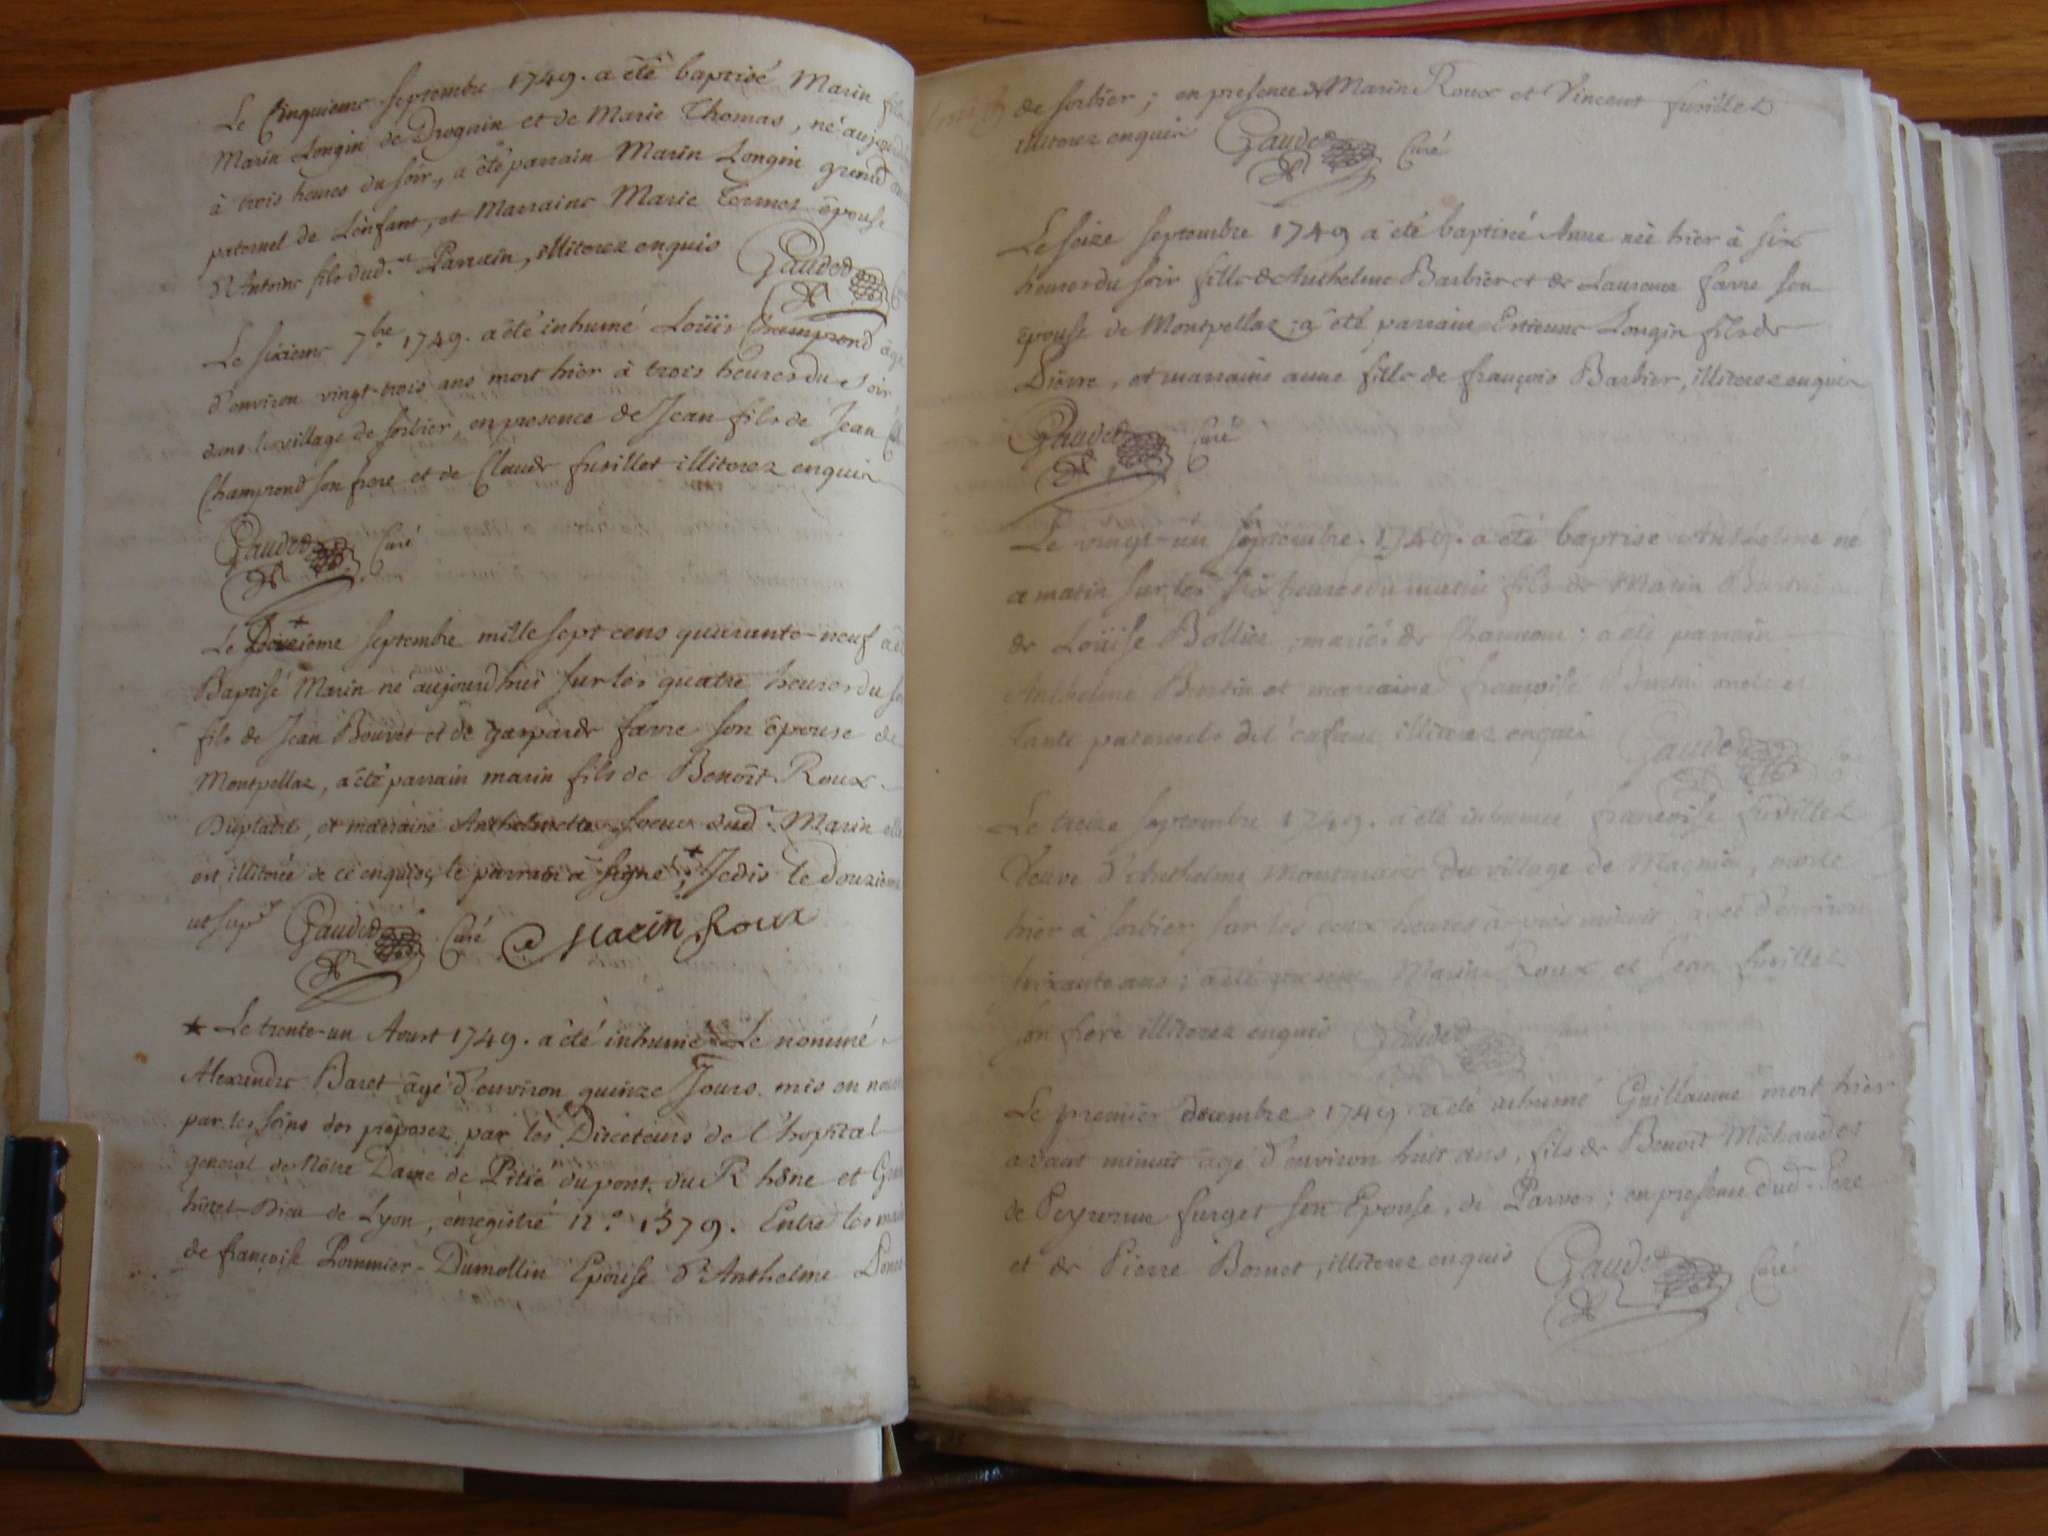 Le Cinquieme Septembre 1749. a été baptisé Marin fils
Marin Longin de Droguin et de Marie Thomas, né aujourd
à trois heures du soir, a été parrain Marin Longin grand
paternel de L'enfant, et Marraine Marie épouse
d'Antoine fils dud. Parrain, illiterez enquis Gaudet
Le sixieme 7bre 1749. a été inhumé Loüis Champrond agé
d'environ vingt-trois ans mort hier à trois heures du soir
dans le village de sorbier, en presence de Jean fils de Jean
Champrond son frere et de Claude fusillet illiterez enquis
Gaudet Curé
Le Douzieme septembre mille sept cens quarante-neuf a été
Baptisé Marin né aujourd'hui sur les quatre heures du
fils de Jean Bouvet et de gasparde favre son épouse de
Montpellaz, a été parrain marin fils de Benoît Roux
Duplatit, et marraine Anthelmette soeur dud. Marin elle
est illiterée de ce enquise, le parrain a signé, Je dis le douzieme
ut sup. Gaudet Curé Marin Roux
Le trente-un Aoust 1749. a été inhumé Le nommé
Alexandre Baret âgé d'environ quinze Jours mis en
par les soins des préposez par les Directeurs de l'hopital
general de Nôtre Dame de Pitié du pont du Rhône et
hôtel-Dieu de Lyon, enregistré n.o 1579. Entre les
de françoise Pommier-Dumollin Epouse d'Anthelme
de sorbier; en presence de Marin Roux et Vincent fusillet
illiterez enquis Gaudet Curé
Le seize septembre 1749 a été baptisée Anne née hier à six
heures du soir fille de Anthelme Barbier et de Laurence favre son
épouse de Montpellaz; a été parrain Estienne Longin fils de
Pierre, et marraine anne fille de françois Barbier, illiterez enquis
Gaudet Curé
Le vingt-un septembre 1749. a été baptisé Anthelme né
ce matin sur les six heures du matin fils de Marin
de Loüise Bollier mariés de ; a été parrain
Anthelme et marraine françoise oncle et
tante paternels de l'enfant illiterez enquis Gaudet
Le treize septembre 1749. a été inhumée françoise fusillet
Veuve d'Anthelme du village de Magnieu, morte
hier à sorbier sur les deux heures après minuit, agée d'environ
soixante ans; a été Marin Roux et Jean fusillet
son frere illiterez enquis Gaudet
Le premier decembre 1749 a été inhumé Guillaume mort hier
avant minuit âgé d'environ huit ans, fils de Benoît Michaudet
de Peyronne furget son Epouse, de Parves; en presence dud. Pere
et de Pierre Bornet, illiterez enquis Gaudet Curé